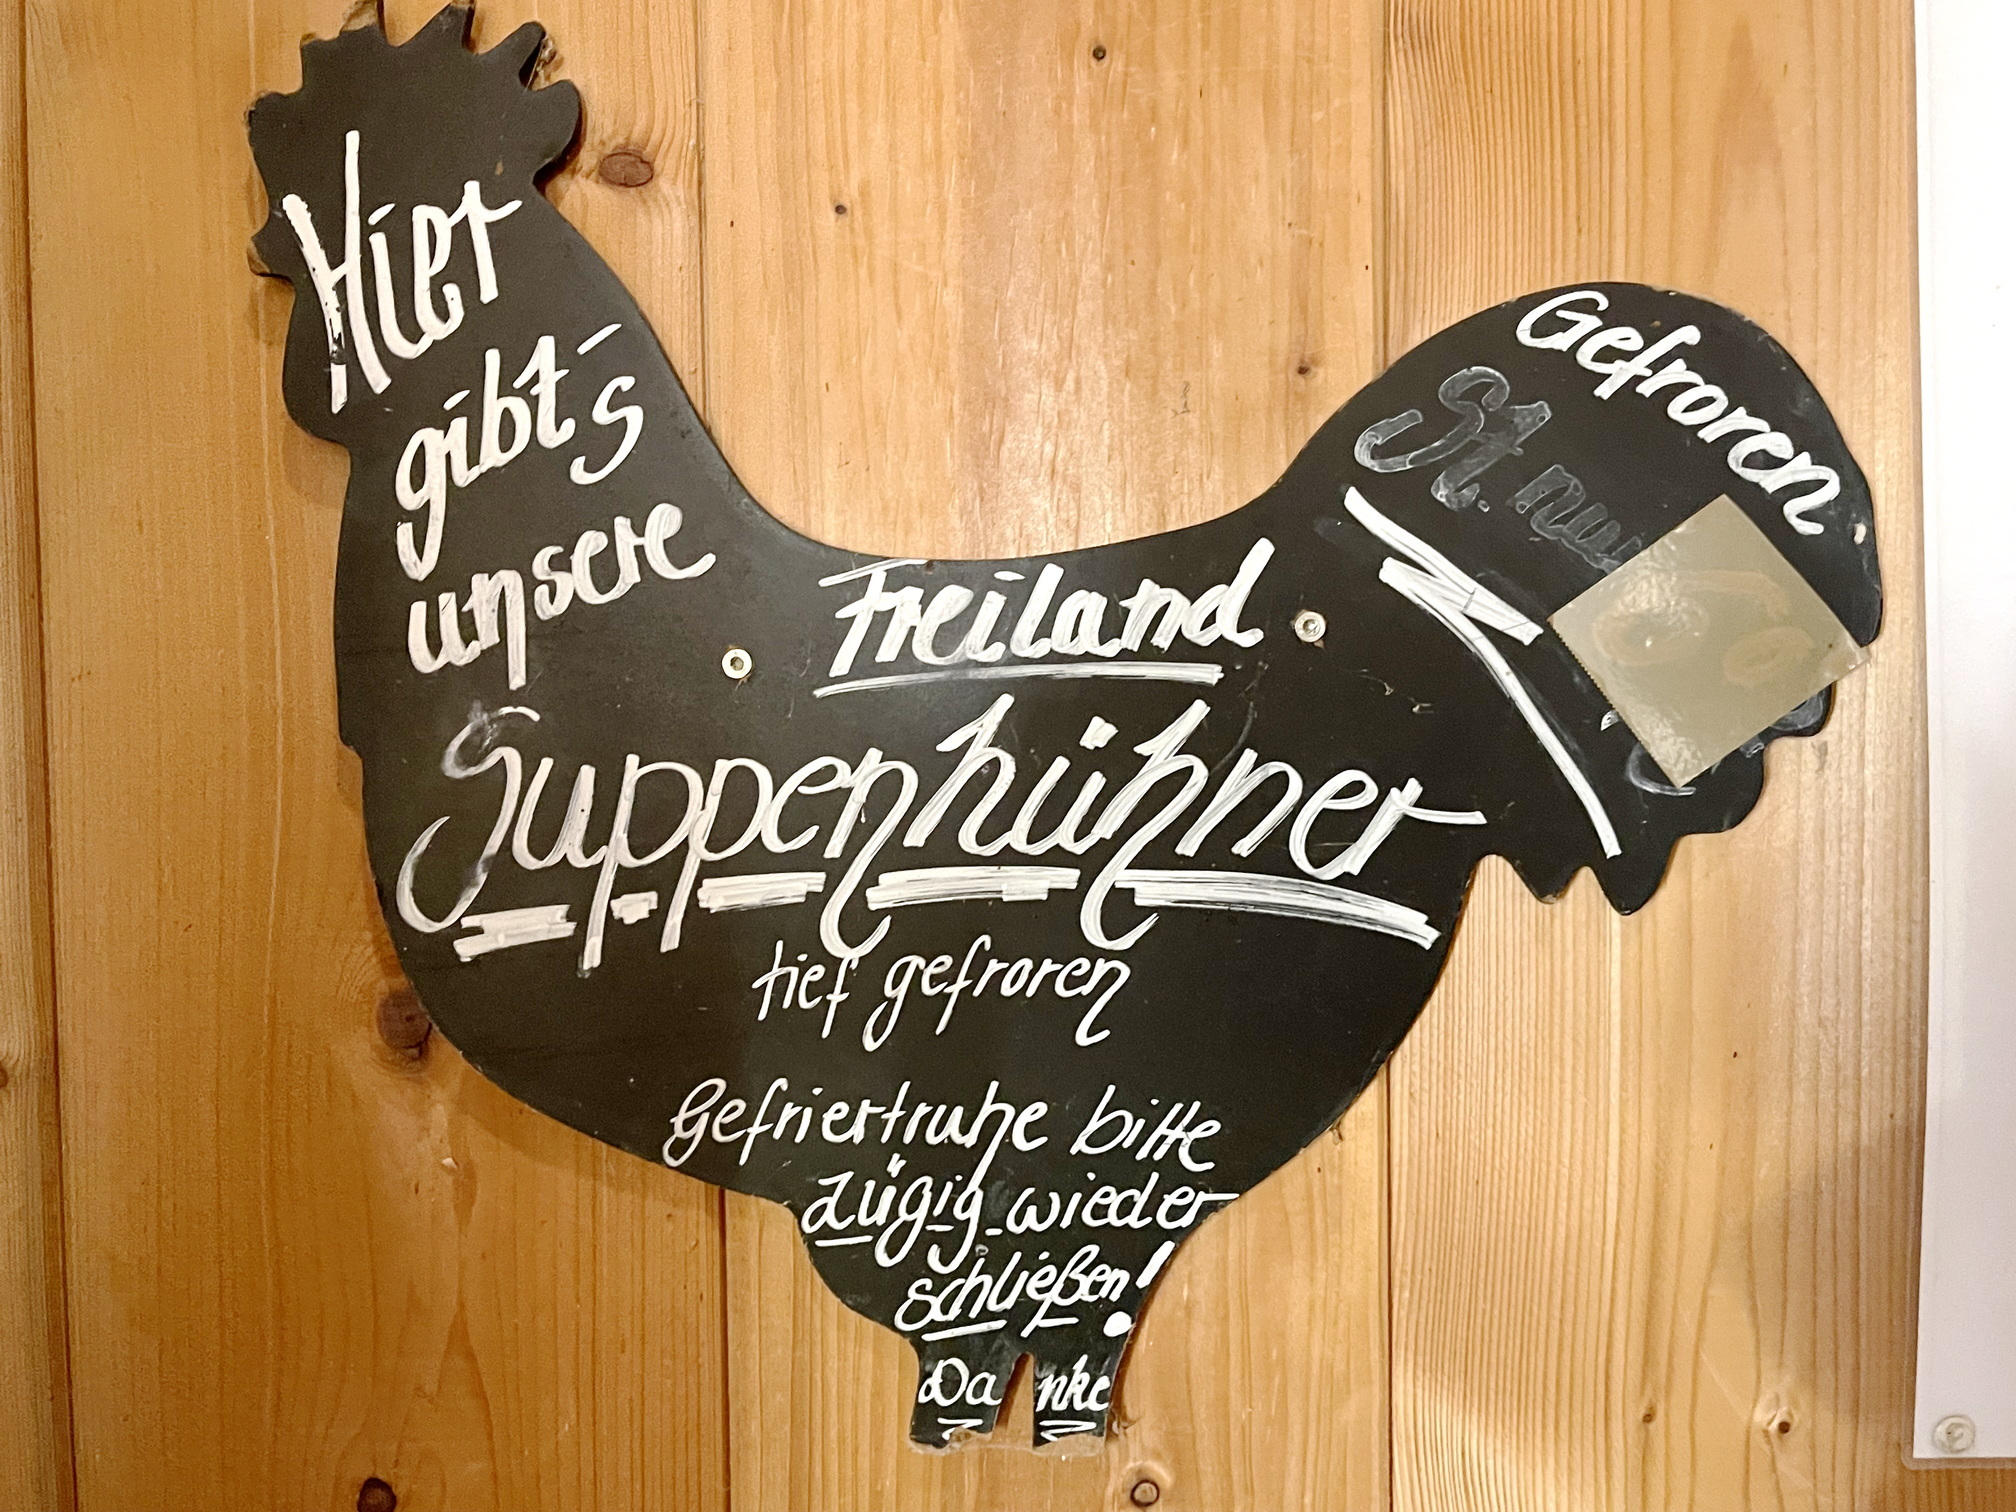 Hier
gibt's
unsere
Freiland
Suppenhühner
tief gefroren
Gefriertruhe bitte
zügig wieder
schließen!
Danke
Gefroren
St. nur